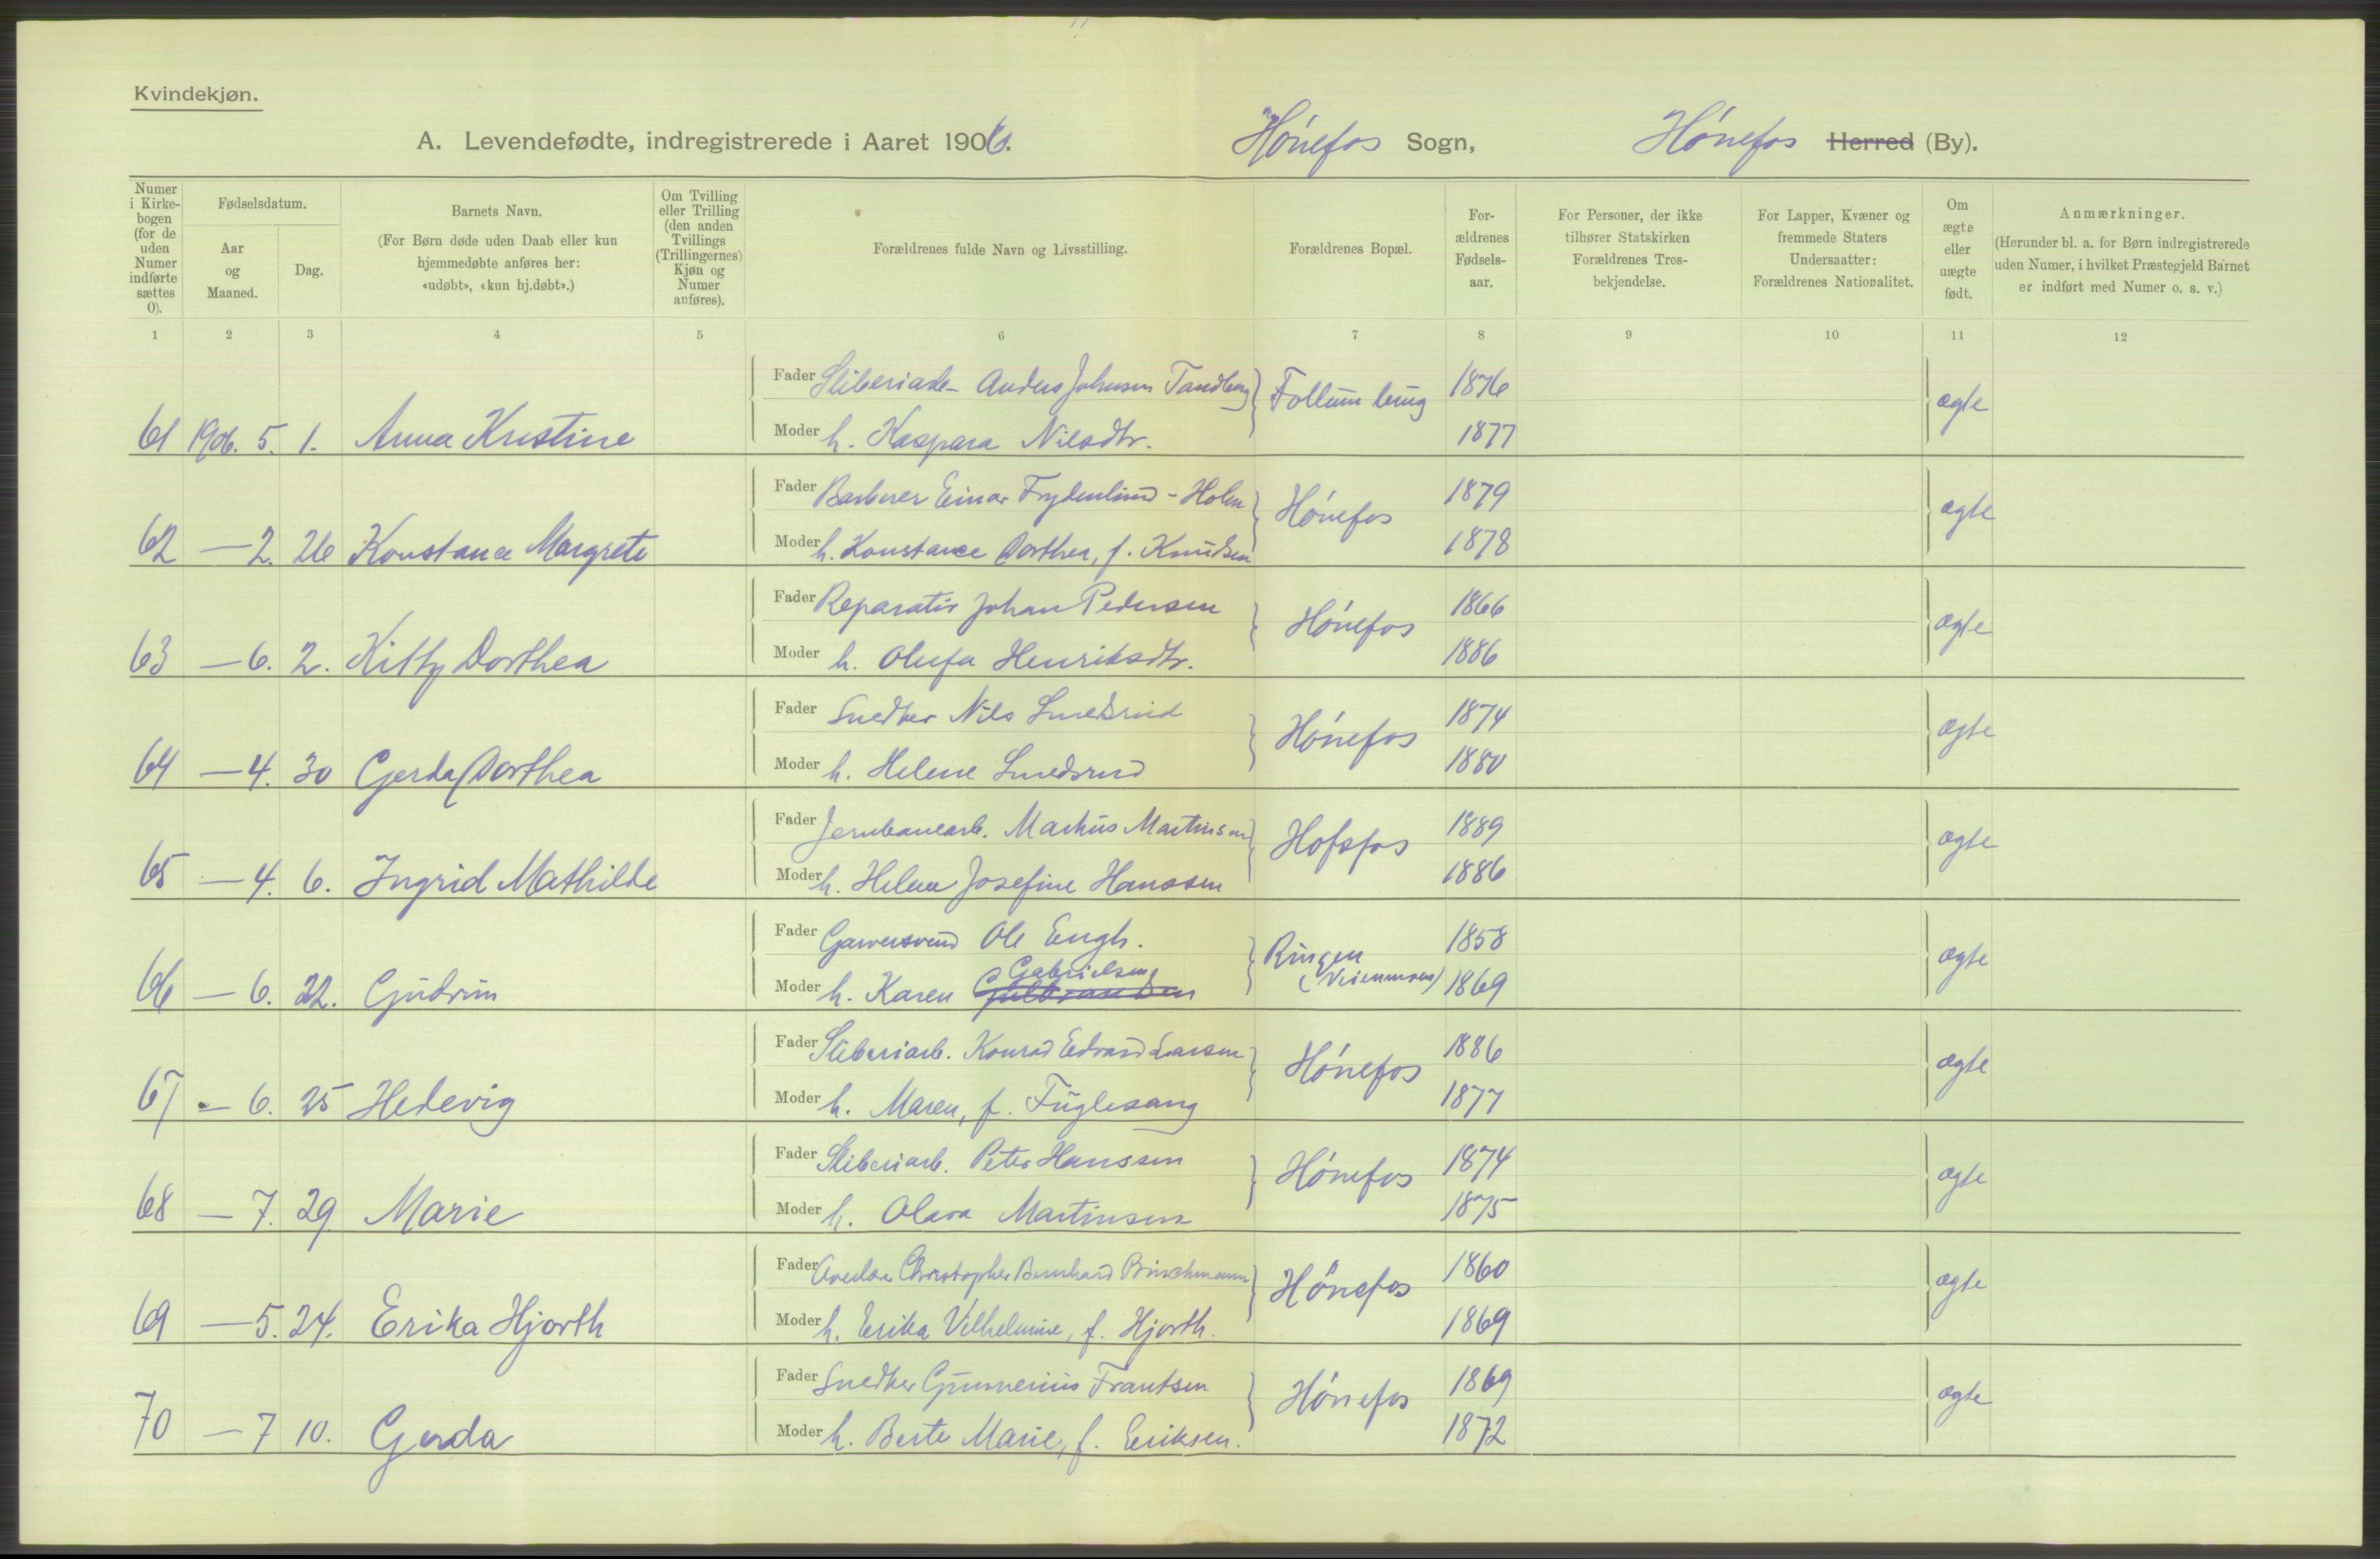 Kvindekjøn.
A. Levendefødte, indregistrerede i Aaret 1906. Hónefos Sogn, Hónefos Herred (By).
Numer i Kirkebogen (for de uden Numer indførte sættes 0).
Fødselsdatum.
Aar og Maaned.
Dag.
Barnets Navn.
(For Børn døde uden Daab eller kun hjemmedøbte anføres her: «udøbt», «kun hj.døbt».)
Om Tvilling eller Trilling (den anden Tvillings (Trillingernes) Kjøn og Numer anføres).
Forældrenes fulde Navn og Livsstilling.
Forældrenes Bopæl.
Forældrenes Fødselsaar.
For Personer, der ikke tilhører Statskirken Forældrenes Trosbekjendelse.
For Lapper, Kvæner og fremmede Staters Undersaatter: Forældrenes Nationalitet.
Om ægte eller uægte født.
Anmærkninger.
(Herunder bl. a. for Børn indregistrerede uden Numer, i hvilket Præstegjeld Barnet er indført med Numer o. s. v.)
1 2 3 4 5 6 7 8 9 10 11 12
Fader Anders Johnsen Tandberg Follum 1876
61 1906. 5. 1. Anna Kristine Moder h. Kaspara Nilsdtr. 1877 ægte
Fader Barberer Einar Frydenlund - Holm Hónefos 1879
62 — 2. 26 Konstance Margrete Moder h. Konstance Dorthea, f. Knudsen 1878 ægte
Fader Reparatør Johan Pedersen Hónefos 1866
63 — 6. 2. Kitty Dorthea Moder h. Olufa Henriksdtr. 1886 ægte
Fader Snedker Nils Smedsrud Hónefos 1874
64 — 4. 30 Gerda Dorthea Moder h. Helene Smedsrud 1880 ægte
Fader Jernbanearb. Markus Martinsen Hofsfos 1889
65 — 4. 6. Ingrid Mathilde Moder h. Helene Josefine Hanssen 1886 ægte
Fader Garversvend Ole Engh. Ringen 1858
66 — 6. 22. Gudrun Moder h. Karen Gulbrandsen Gabrielsen (Veienmoen) 1869 ægte
Fader Sliberiarb. Konrad Edvard Larsen Hónefos 1886
67 — 6. 25 Hedevig Moder h. Maren, f. Fuglesang 1877 ægte
Fader Sliberiarb. Peter Hanssen Hónefos 1874
68 — 7. 29. Marie Moder h. Olava Martinsen 1875 ægte
Fader Christopher Bernhard Brinchmann Hónefos 1860
69 — 5. 24. Erika Hjorth Moder h. Erika Vilhelmine, f. Hjorth. 1869 ægte
Fader Snedker Gunnerius Frantsen Hónefos 1869
70 — 7 10. Gerda Moder h. Berte Marie, f. Eriksen. 1872 ægte